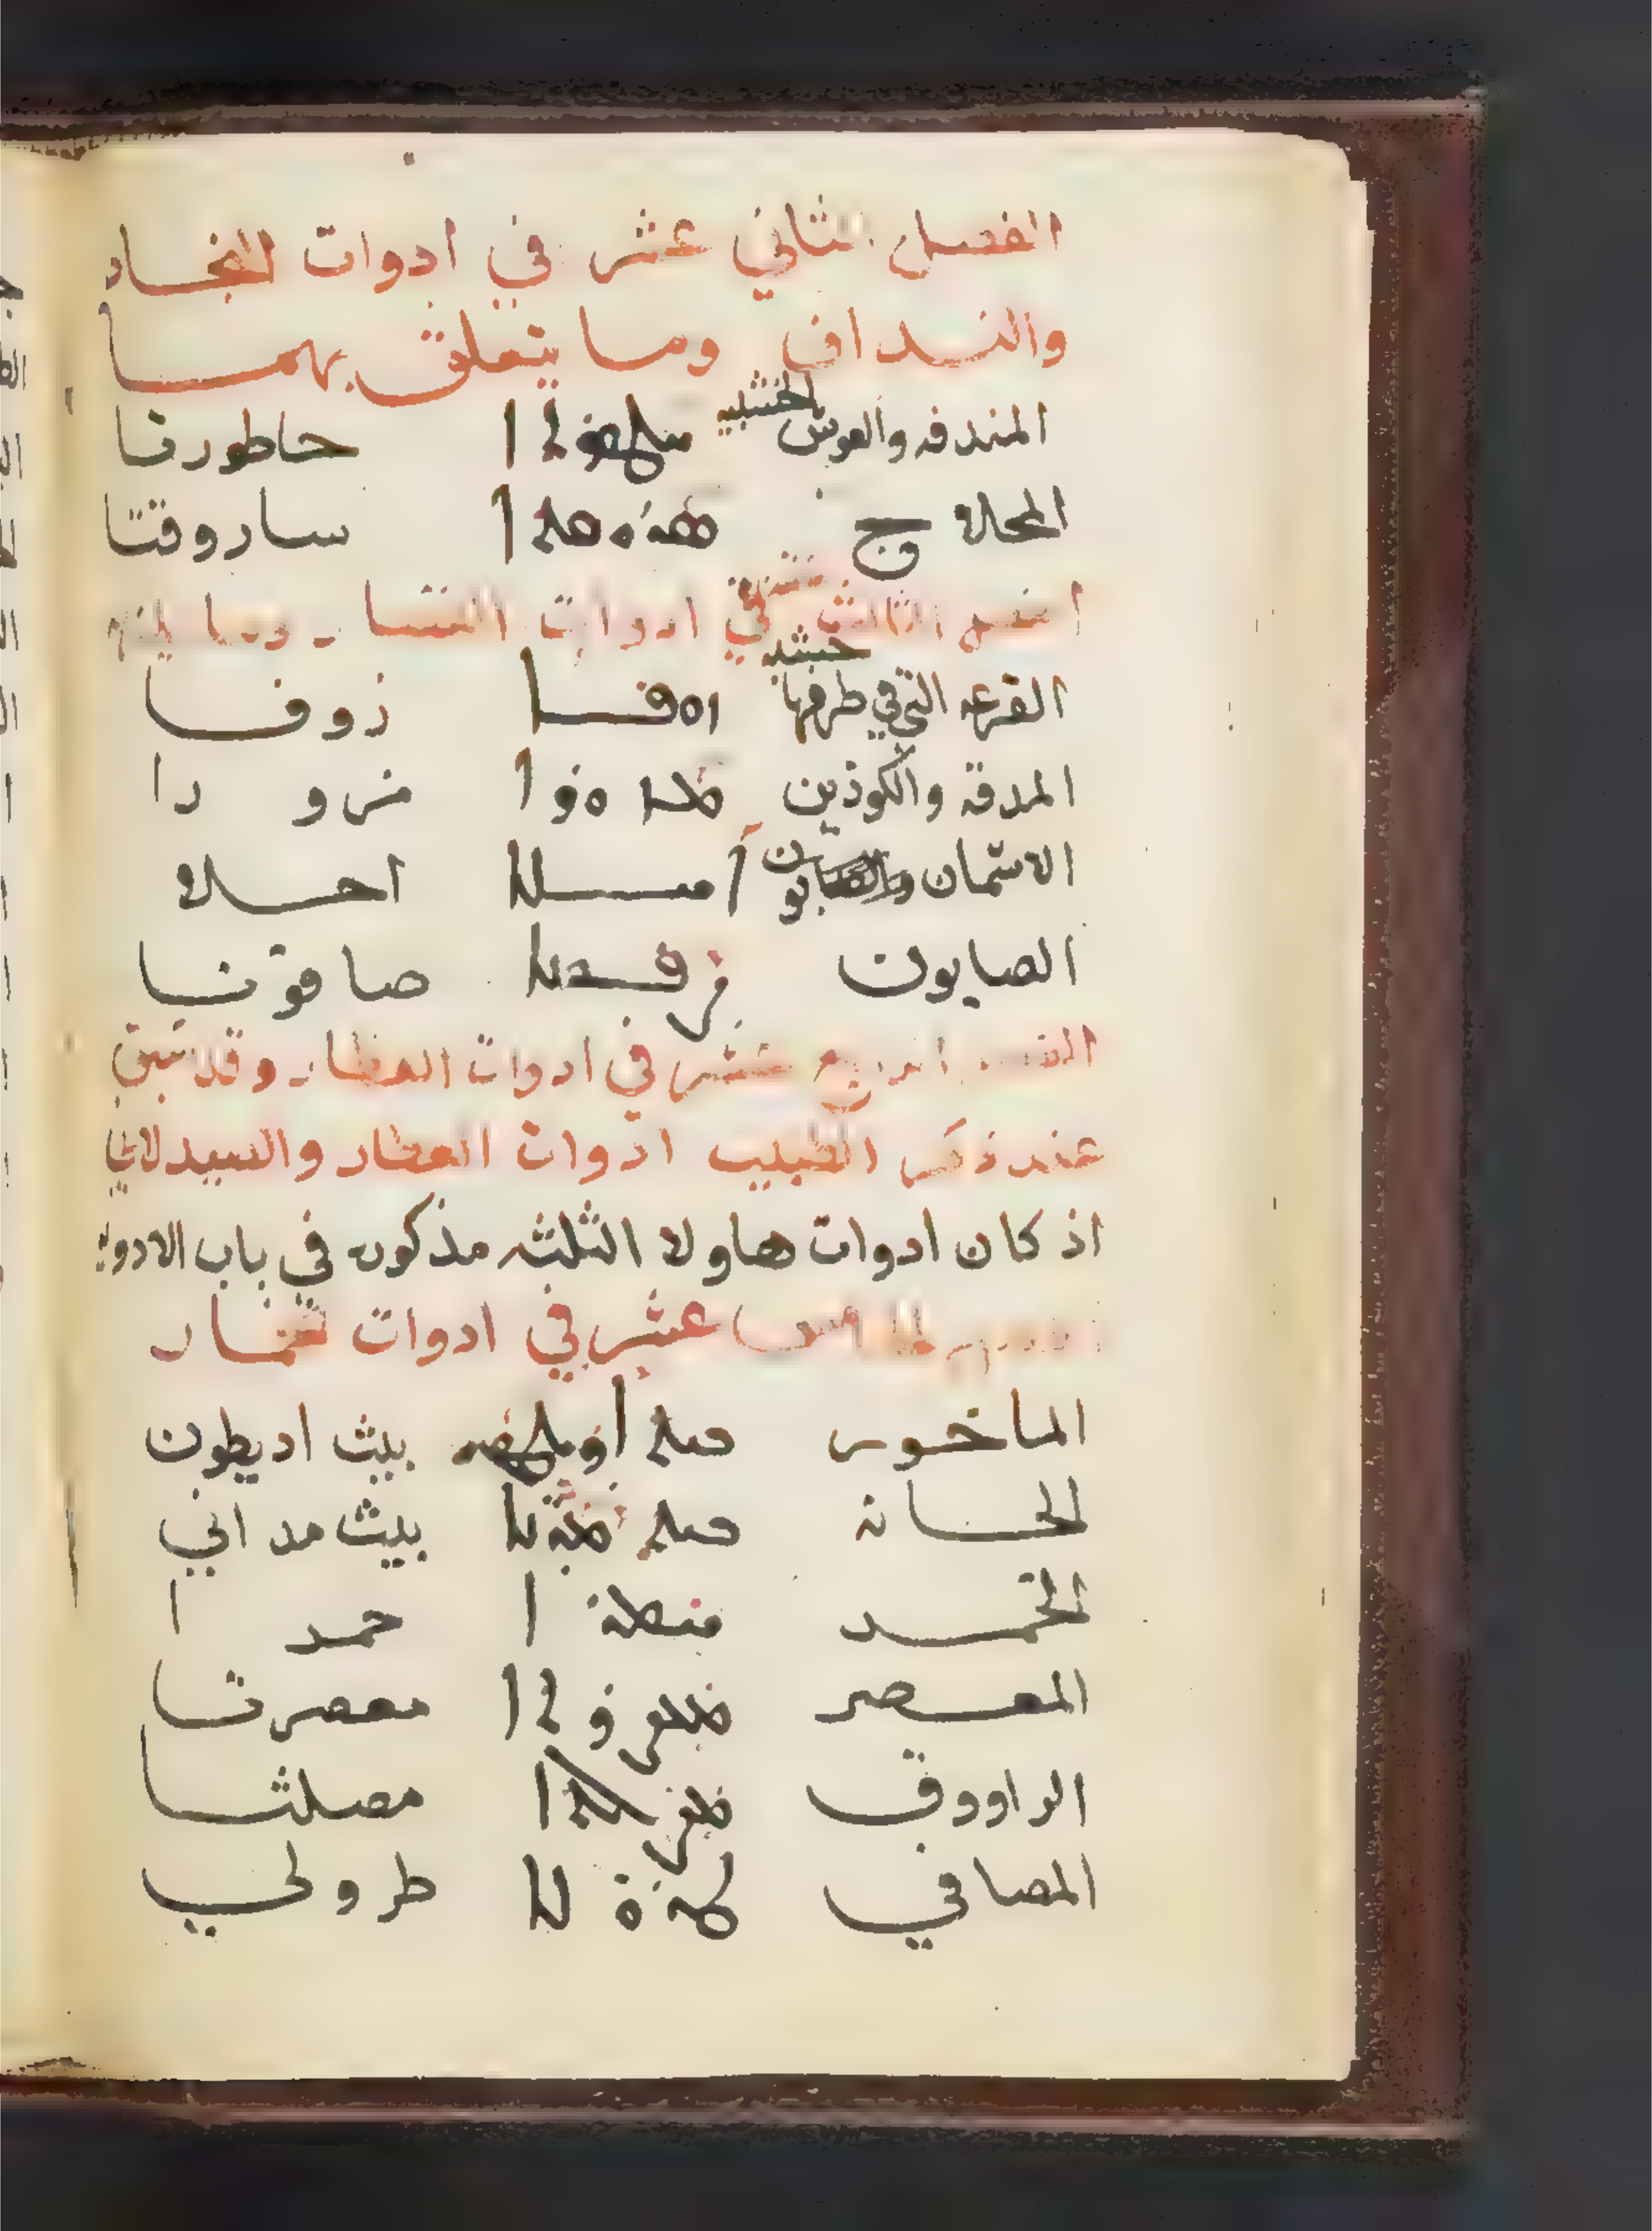 الفصل الثاني عشر في ادوات النجاد
والنداف وما يتعلق بهما
المندفه والقوس الخشبيه ܚܛܘܪܬܐ حاطورتا
المحلاج ܣܪܘܩܬܐ ساروقتا
الثالث عشر في ادوات وما
القرعه التي في طرفها خشبه ܙܘܦܐ زوفا
المدقه والكوذين ܡܙܘܪܐ مزورا
الاشمان ܐܚܠܐ احلا
الصابون صافونا
الرابع عشر في ادوات العطار وقد سبق
عند ذكر الطبيب ادوات العطار والسيدلاني
اذ كان ادوات هاولا الثلثه مذكوره في باب الادويه
الخامس عشر في ادوات الخمار
الماخور ܒܝܬ ܐܪܝܛܘܢ بيث اديطون
الحانه ܒܝܬ بيث مداني
الخمر ܚܡܪܐ حمرا
المعصر ܡܥܨܪܬܐ معصرتا
الراووق ܡܨܠܬܐ مصلثا
المصافي ܛܪܘܠܐ طرولي